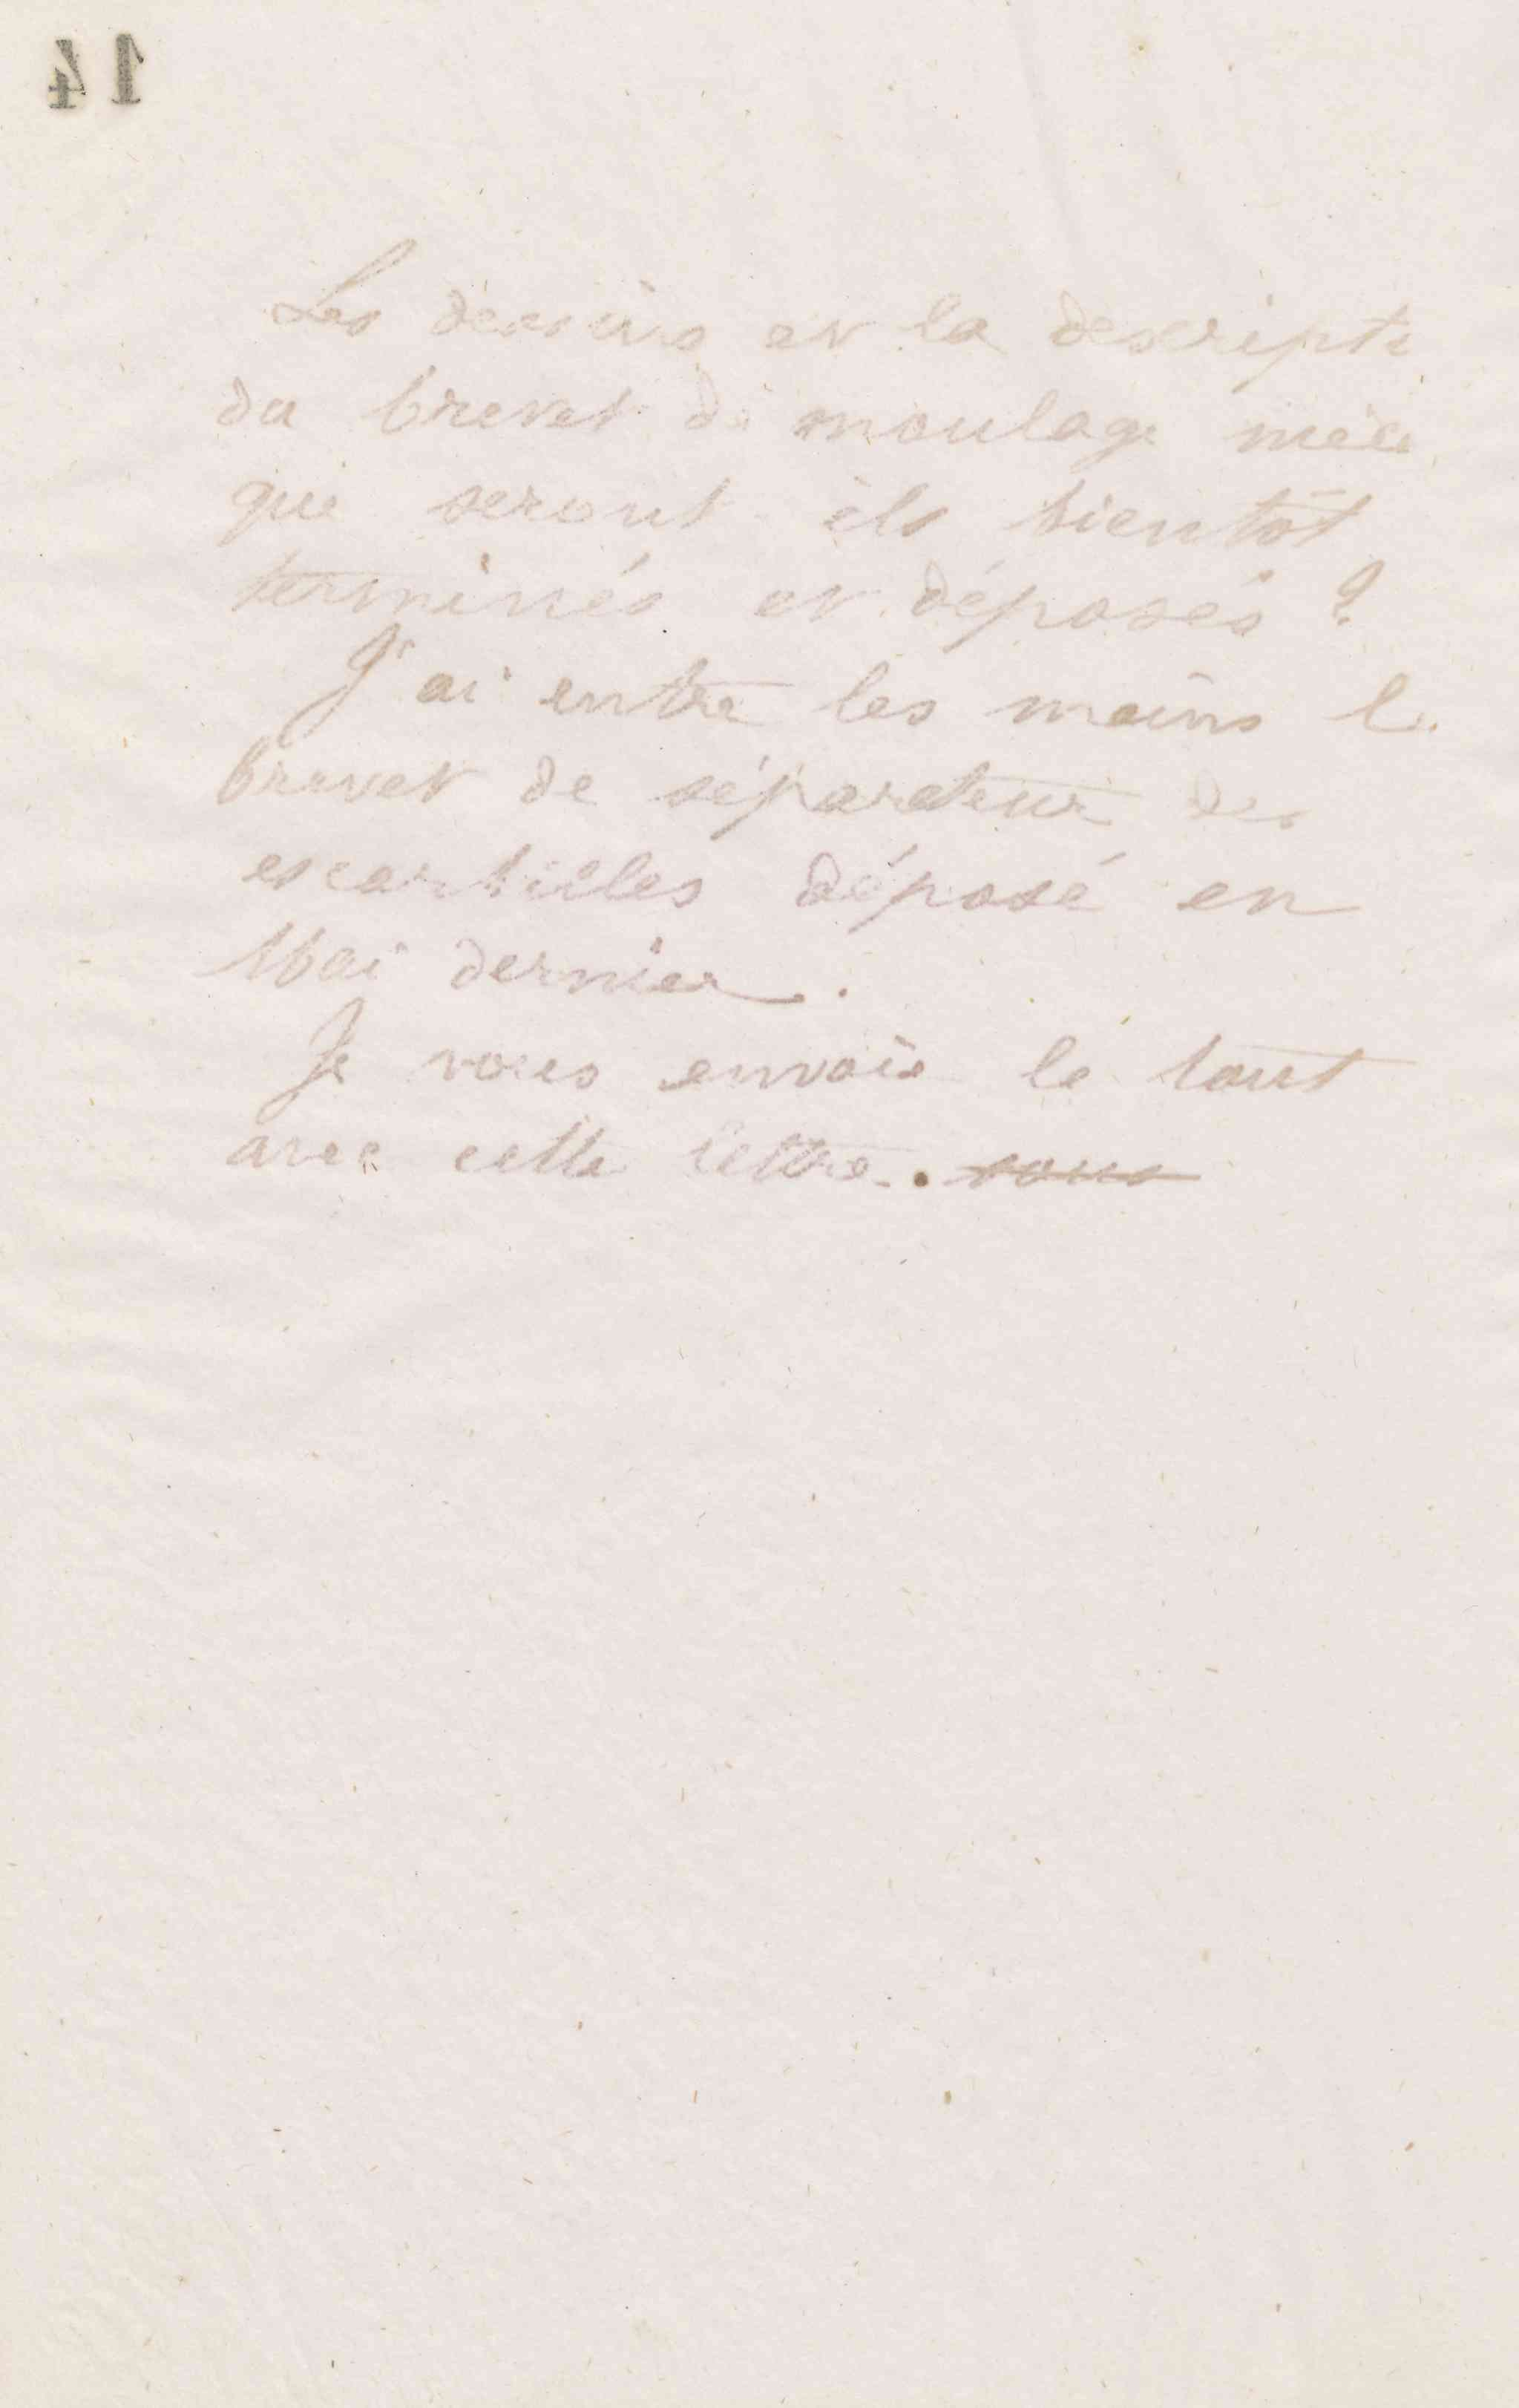 14
Les dessins et la descripti
du brevet de moulage méca
que seront ils bientôt
terminés et déposés ?
J'ai entre les mains le
brevet de séparateur des
escarbilles déposé en
Mai dernier.
Je vous envoie le tout
avec cette lettre. vous